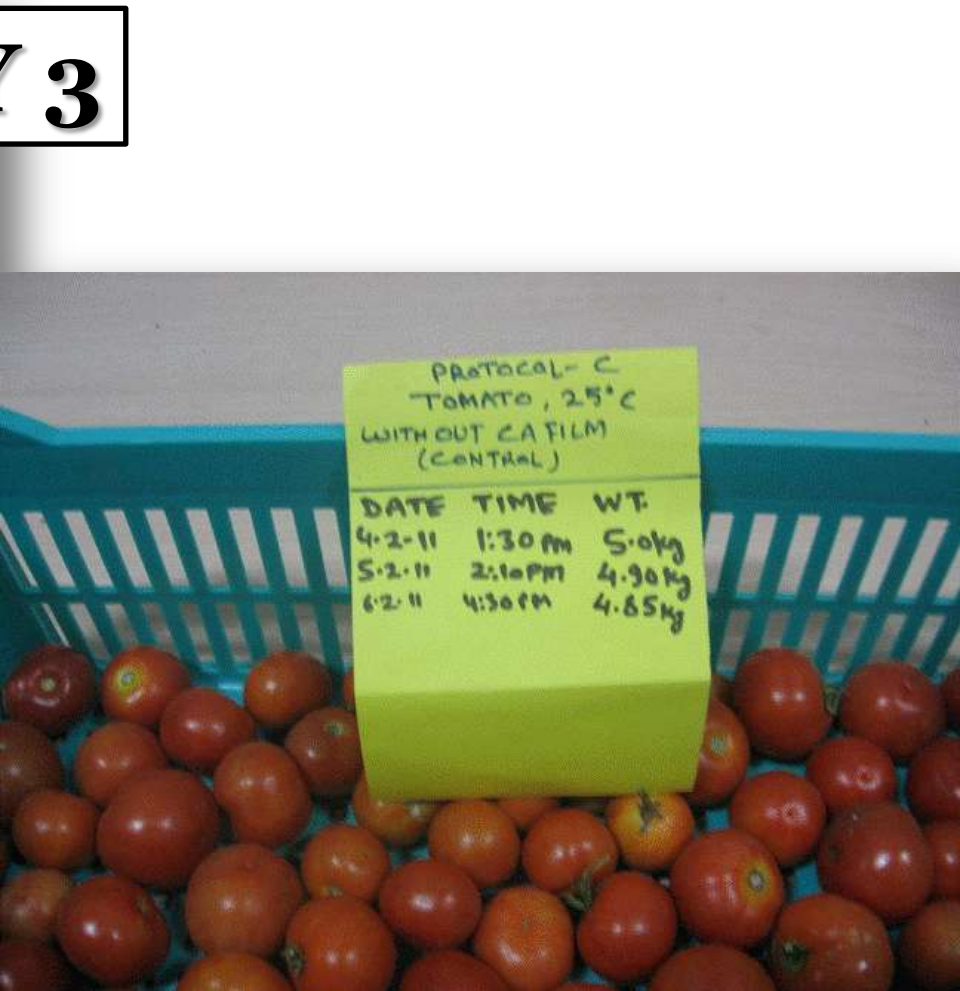 Y 3
PROTOCOL- C
TOMATO, 25°C
WITHOUT CA FILM
(CONTROL)
DATE TIME WT.
4-2-11 1:30 PM 5.0kg
5.2.11 2:10PM 4.90Kg
6.2.11 4:30PM 4.85Kg